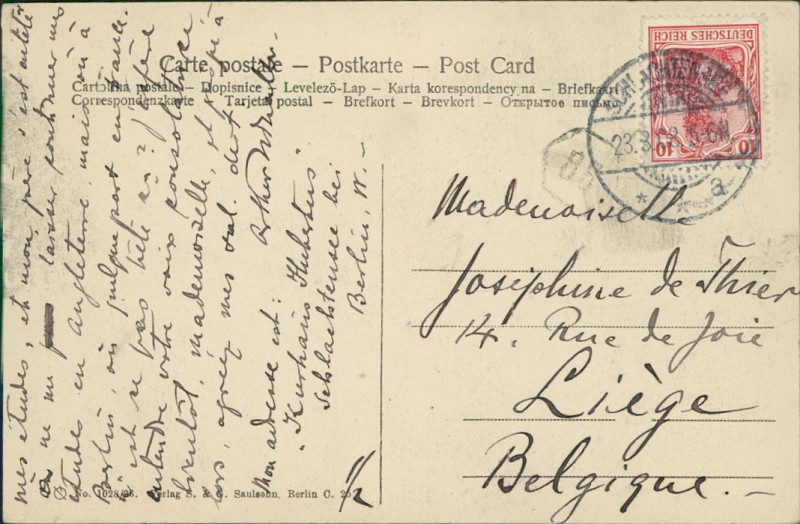 Carte postale — Postkarte — Post Card
Cartolina postale — Dopisnice — Levelező-Lap — Karta korespondency na — Briefkaart
Correspondenzkarte — Tarjeta postal — Brefkort — Brevkort — Открытое письмо
DEUTSCHES REICH
10 10
23.3. 5-6N.
* * a
mes études, et mon père s'est entêté
à ne me laisser continuer mes
études en Angleterre, mais ou à
Berlin, ou quelque part en France.
n'est ce pas bête ça? J'espère
entendre votre voix consolatrice
bientôt, mademoiselle, et
lors, agréez mes sal. de
Arthur
Mon adresse est:
"Kurhaus Hubertus"
Schlachtensee bei
Berlin, W.—
Mademoiselle
Joséphine de Thier
14, Rue de Joie
Liège
Belgique.—
No. 1028/26. Verlag S. & G. Saulsohn, Berlin C. 25